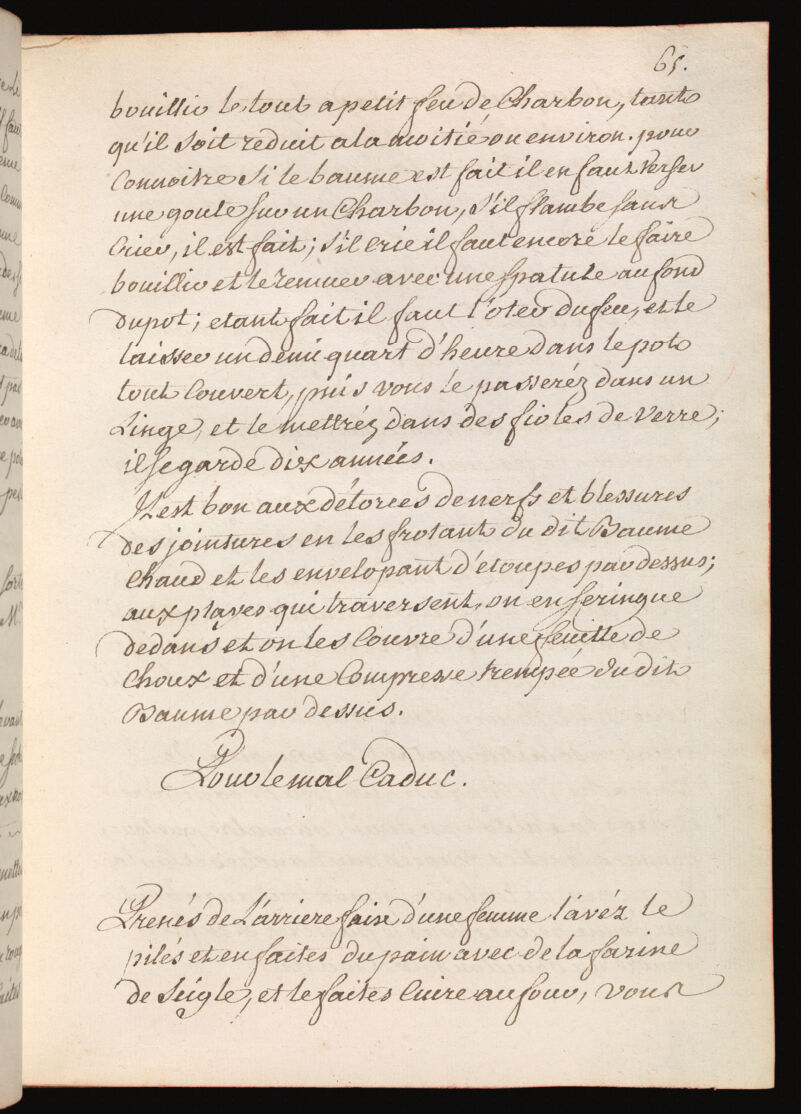 65.
bouillir le tout a petit feu de Charbon, tant
qu'il soit reduit a la moitié ou environ. pour
Connoitre si le baume est fait il en faut verser
une goute sur un Charbon, s'il flambe sans
Crier, il est fait; s'il crie il faut encore le faire
bouillir et le remuer avec une spatule au fond
du pot; etant fait il faut l'oter du feu, et le
laisser un demi quart d'heure dans le pot
tout Couvert, puis vous le passeréz dans un
Linge, et le mettréz dans des fioles de verre;
il se garde dix années.
Il est bon aux détorces de nerfs et blessures
des jointures en les frotant du dit Baume
Chaud et les envelopant d'étoupes par dessus;
aux playes qui traversent, on en seringue
dedans et on les Couvre d'une feuille de
Choux et d'une Compresse trempée du dit
Baume par dessus.
Pour le mal Caduc.
Prenés de L'arriere faix d'une femme lavéz le
pilés et en faites du pain avec de la farine
de Seigle, et le faites Cuire au four, vous